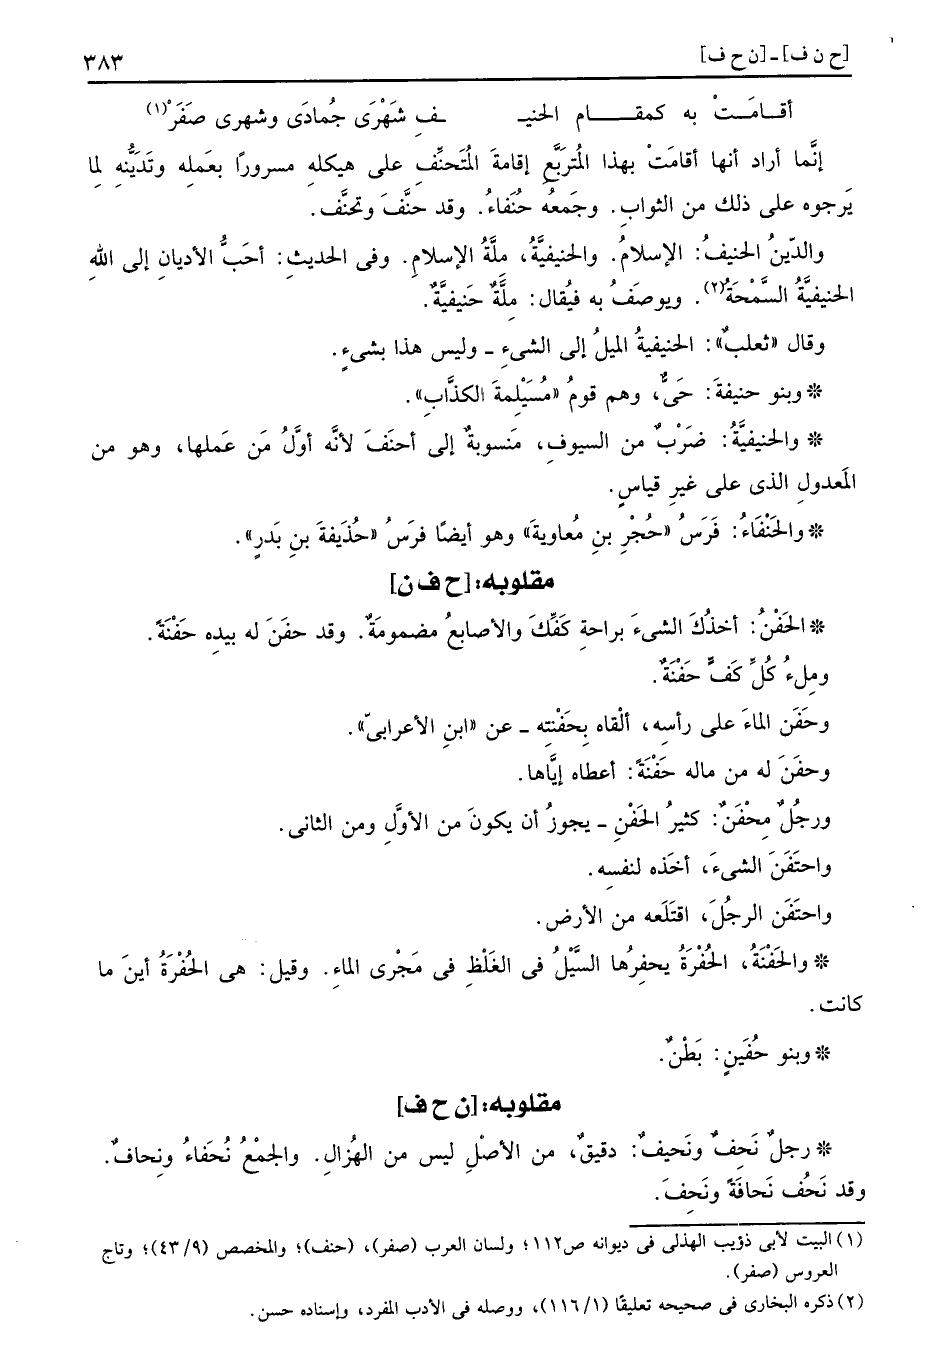 [ح ن ف] ـ [ن ح ف]
٣٨٣
أقــامَــتْ به كمقـــــام الحَنيـ ـفِ شَهْرَى جُمادَى وشهرى صَفَرْ(١)
إنَّما أراد أنها أقامَتْ بهذا المُتربَّعِ إقامةَ المُتَحنِّف على هيكله مسرورًا بعَمله وتَدَيُّنه لما
يَرجوه على ذلك من الثواب. وجَمعُه حُنَفاءُ. وقد حنَّفَ وتحنَّف.
والدّينُ الحَنيفُ: الإسلامُ. والحَنيفيَّةُ، ملَّةُ الإسلامِ. وفى الحَديث: أحَبُّ الأديان إلى اللهِ
الحَنيفيَّةُ السَّمْحَةُ(٢). ويوصَفُ به فيُقال: ملَّةٌ حَنيفيَّةٌ.
وقال «ثعلبٌ»: الحَنيفيةُ الميلُ إلى الشىءِ ـ وليس هذا بشىءٍ.
* وبنو حنيفةَ: حَىٌّ، وهم قومُ «مُسَيْلِمةَ الكذَّاب».
* والحَنيفيَّةُ: ضَرْبٌ من السيوفِ، مَنسوبةٌ إلى أحنَفَ لأنَّه أوَّلُ مَن عَملها، وهو من
المَعدولِ الذى على غيرِ قياسٍ.
* والحَنْفَاءُ: فَرَسُ «حُجْرِ بنِ مُعاويةَ» وهو أيضًا فرَسُ «حُذَيفةَ بنِ بَدرٍ».
مقلوبه: [ح ف ن]
* الحَفْنُ: أخذُكَ الشىءَ براحةِ كَفِّكَ والأصابعُ مضمومَةٌ. وقد حفَنَ له بيدِه حَفْنَةً.
ومِلءُ كُلِّ كَفٍّ حَفْنَةٌ.
وحَفَن الماءَ على رأسِه، ألْقاه بِحَفْنتِه ـ عن «ابنِ الأعرابىّ».
وحفَنَ له من مالِه حَفْنَةً: أعطاه إيَّاها.
ورجُلٌ مِحْفَنٌ: كثيرُ الحَفْنِ ـ يجوزُ أن يكونَ من الأوَّلِ ومن الثانى.
واحتَفَنَ الشىءَ، أخَذه لنفسِه.
واحتَفَن الرجُلَ، اقتَلَعه من الأرض.
* والحَفْنَةُ، الحُفْرَةُ يحفِرُها السَّيْلُ فى الغَلْظِ فى مَجْرى الماءِ. وقيل: هى الحُفْرَةُ أينَ ما
كانت.
* وبنو حُفَينٍ: بَطْنٌ.
مقلوبه: [ن ح ف]
* رجلٌ نَحِفٌ ونَحيفٌ: دقيقٌ، من الأصْلِ ليس من الهُزالِ. والجمْعُ نُحَفاءُ ونِحافٌ.
وقد نَحُف نَحافَةً ونَحِفَ.
(١) البيت لأبى ذؤيب الهذلى فى ديوانه ص١١٢؛ ولسان العرب (صفر)، (حنف)؛ والمخصص (٤٣/٩)؛ وتاج
العروس (صفر).
(٢) ذكره البخارى فى صحيحه تعليقًا (١١٦/١)، ووصله فى الأدب المفرد، وإسناده حسن.